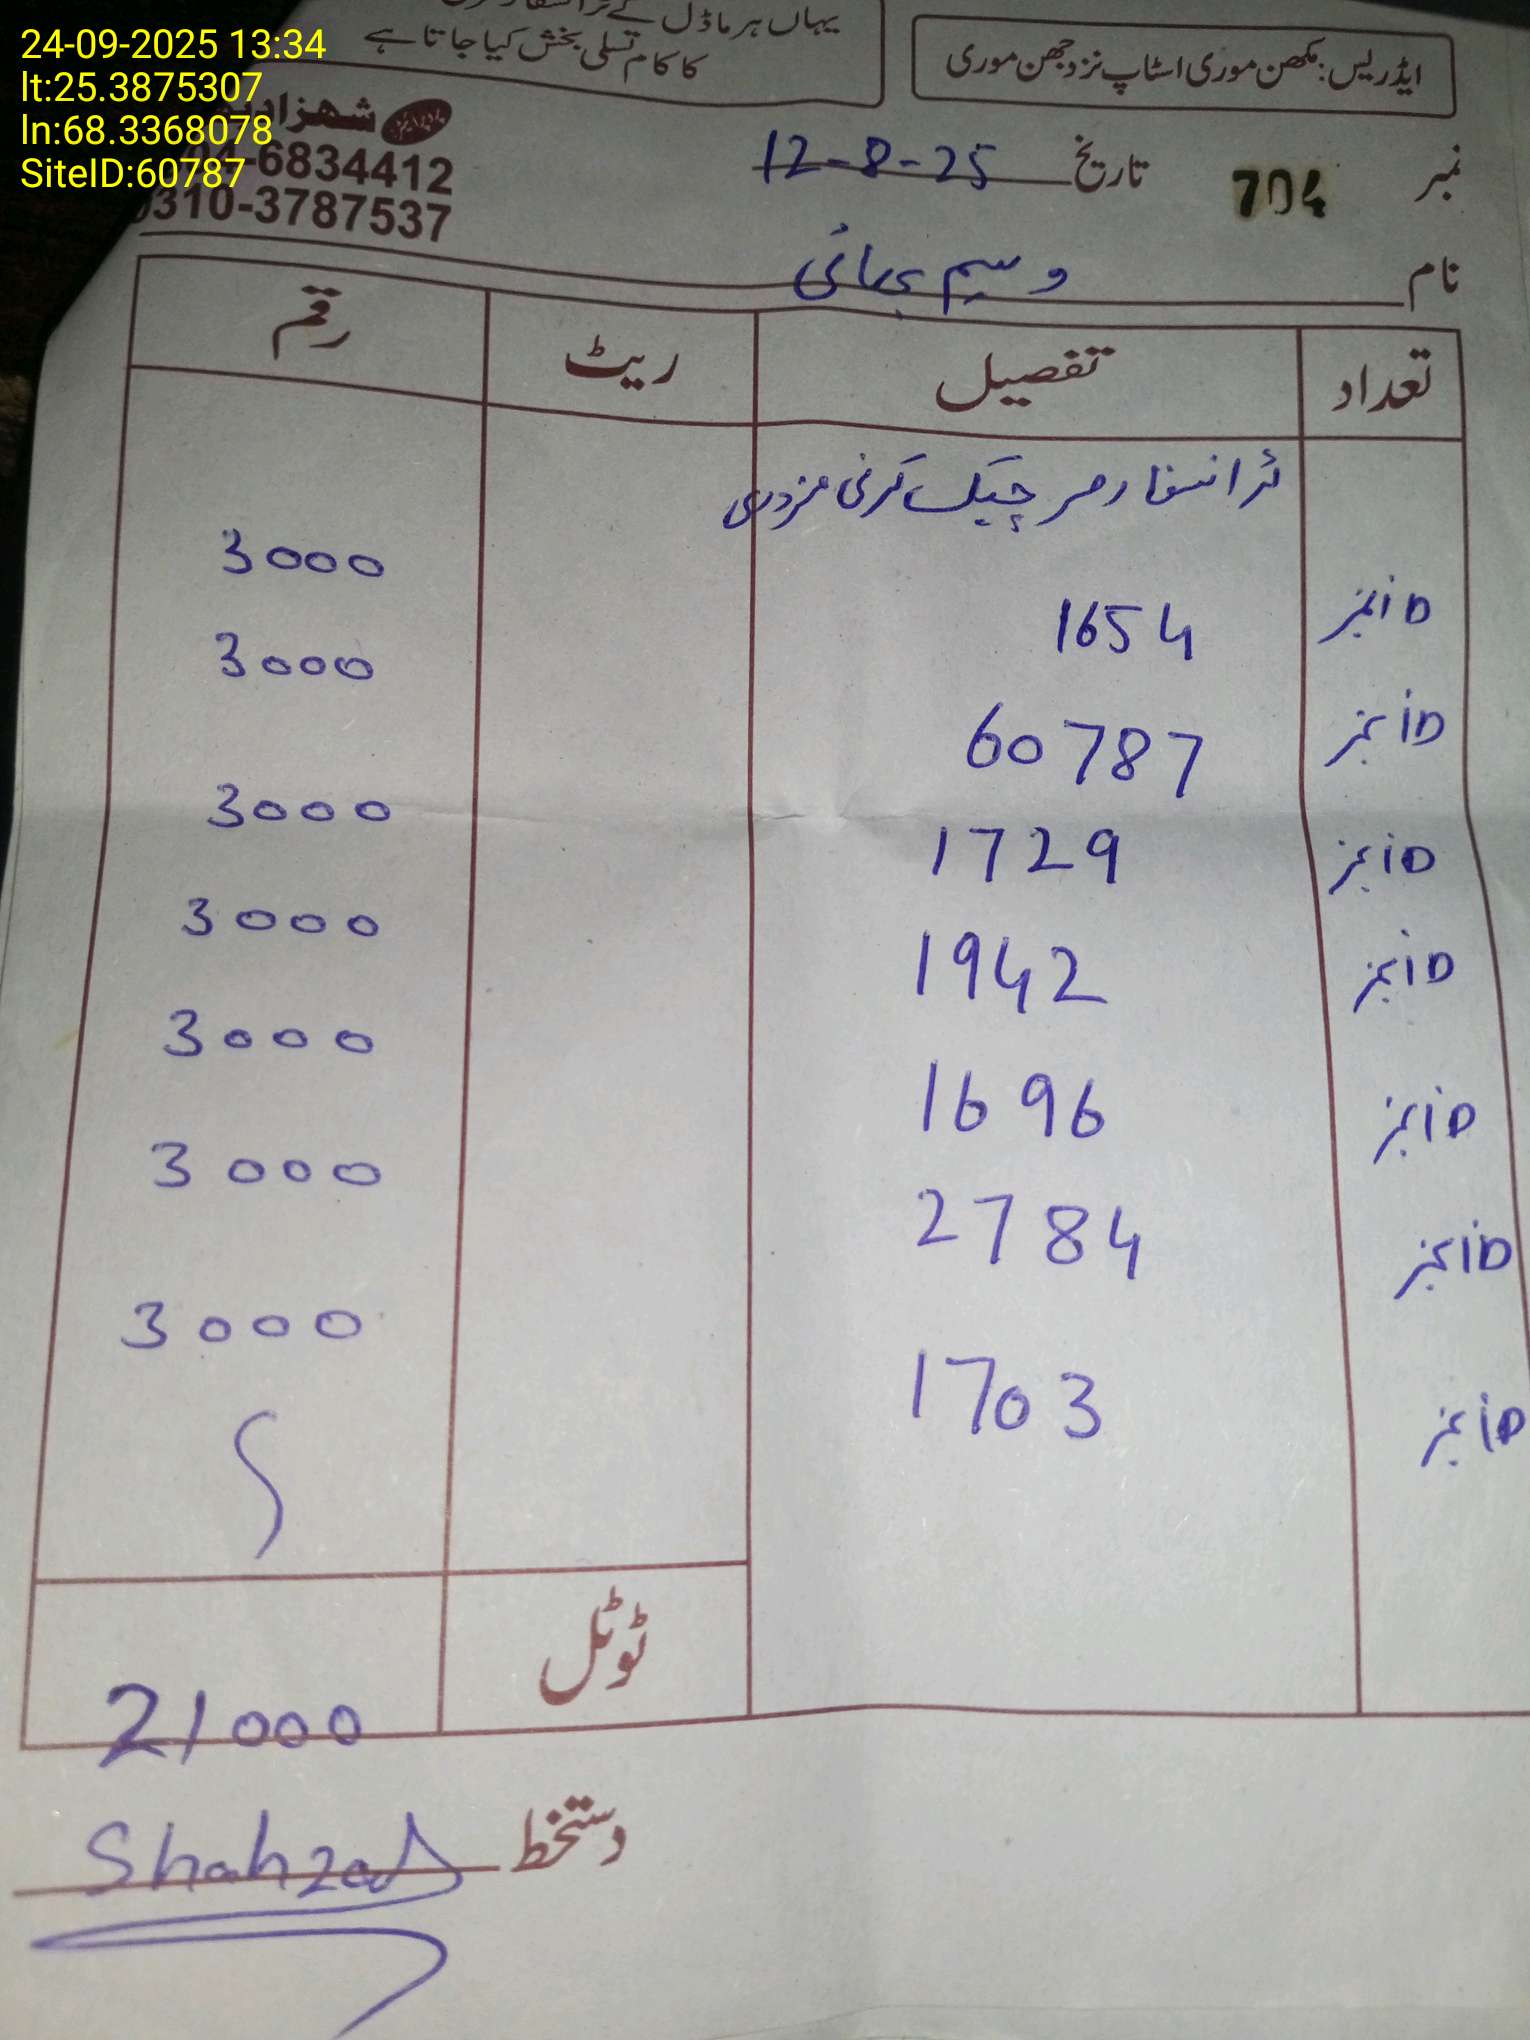 24-09-2025 13:34
lt:25.3875307
ln:68.3368078
SiteID:60787
یہاں ہر ماڈل کے
کا کام تسلی بخش کیا جاتا ہے
ایڈریس: مکھن موری اسٹاپ نزد جھن موری
پروپرائیٹر شهزاد
04-6834412
0310-3787537
نمبر 704 تاریخ 12-8-25
نام وسیم بھائی
تعداد تفصیل ریٹ رقم
ٹرانسفارمر چیک کرنی مزدوری
ID نمبر 1654 3000
ID نمبر 60787 3000
ID نمبر 1729 3000
ID نمبر 1942 3000
ID نمبر 1696 3000
ID نمبر 2784 3000
ID نمبر 1703 3000
ٹوٹل 21000
دستخط Shahzad